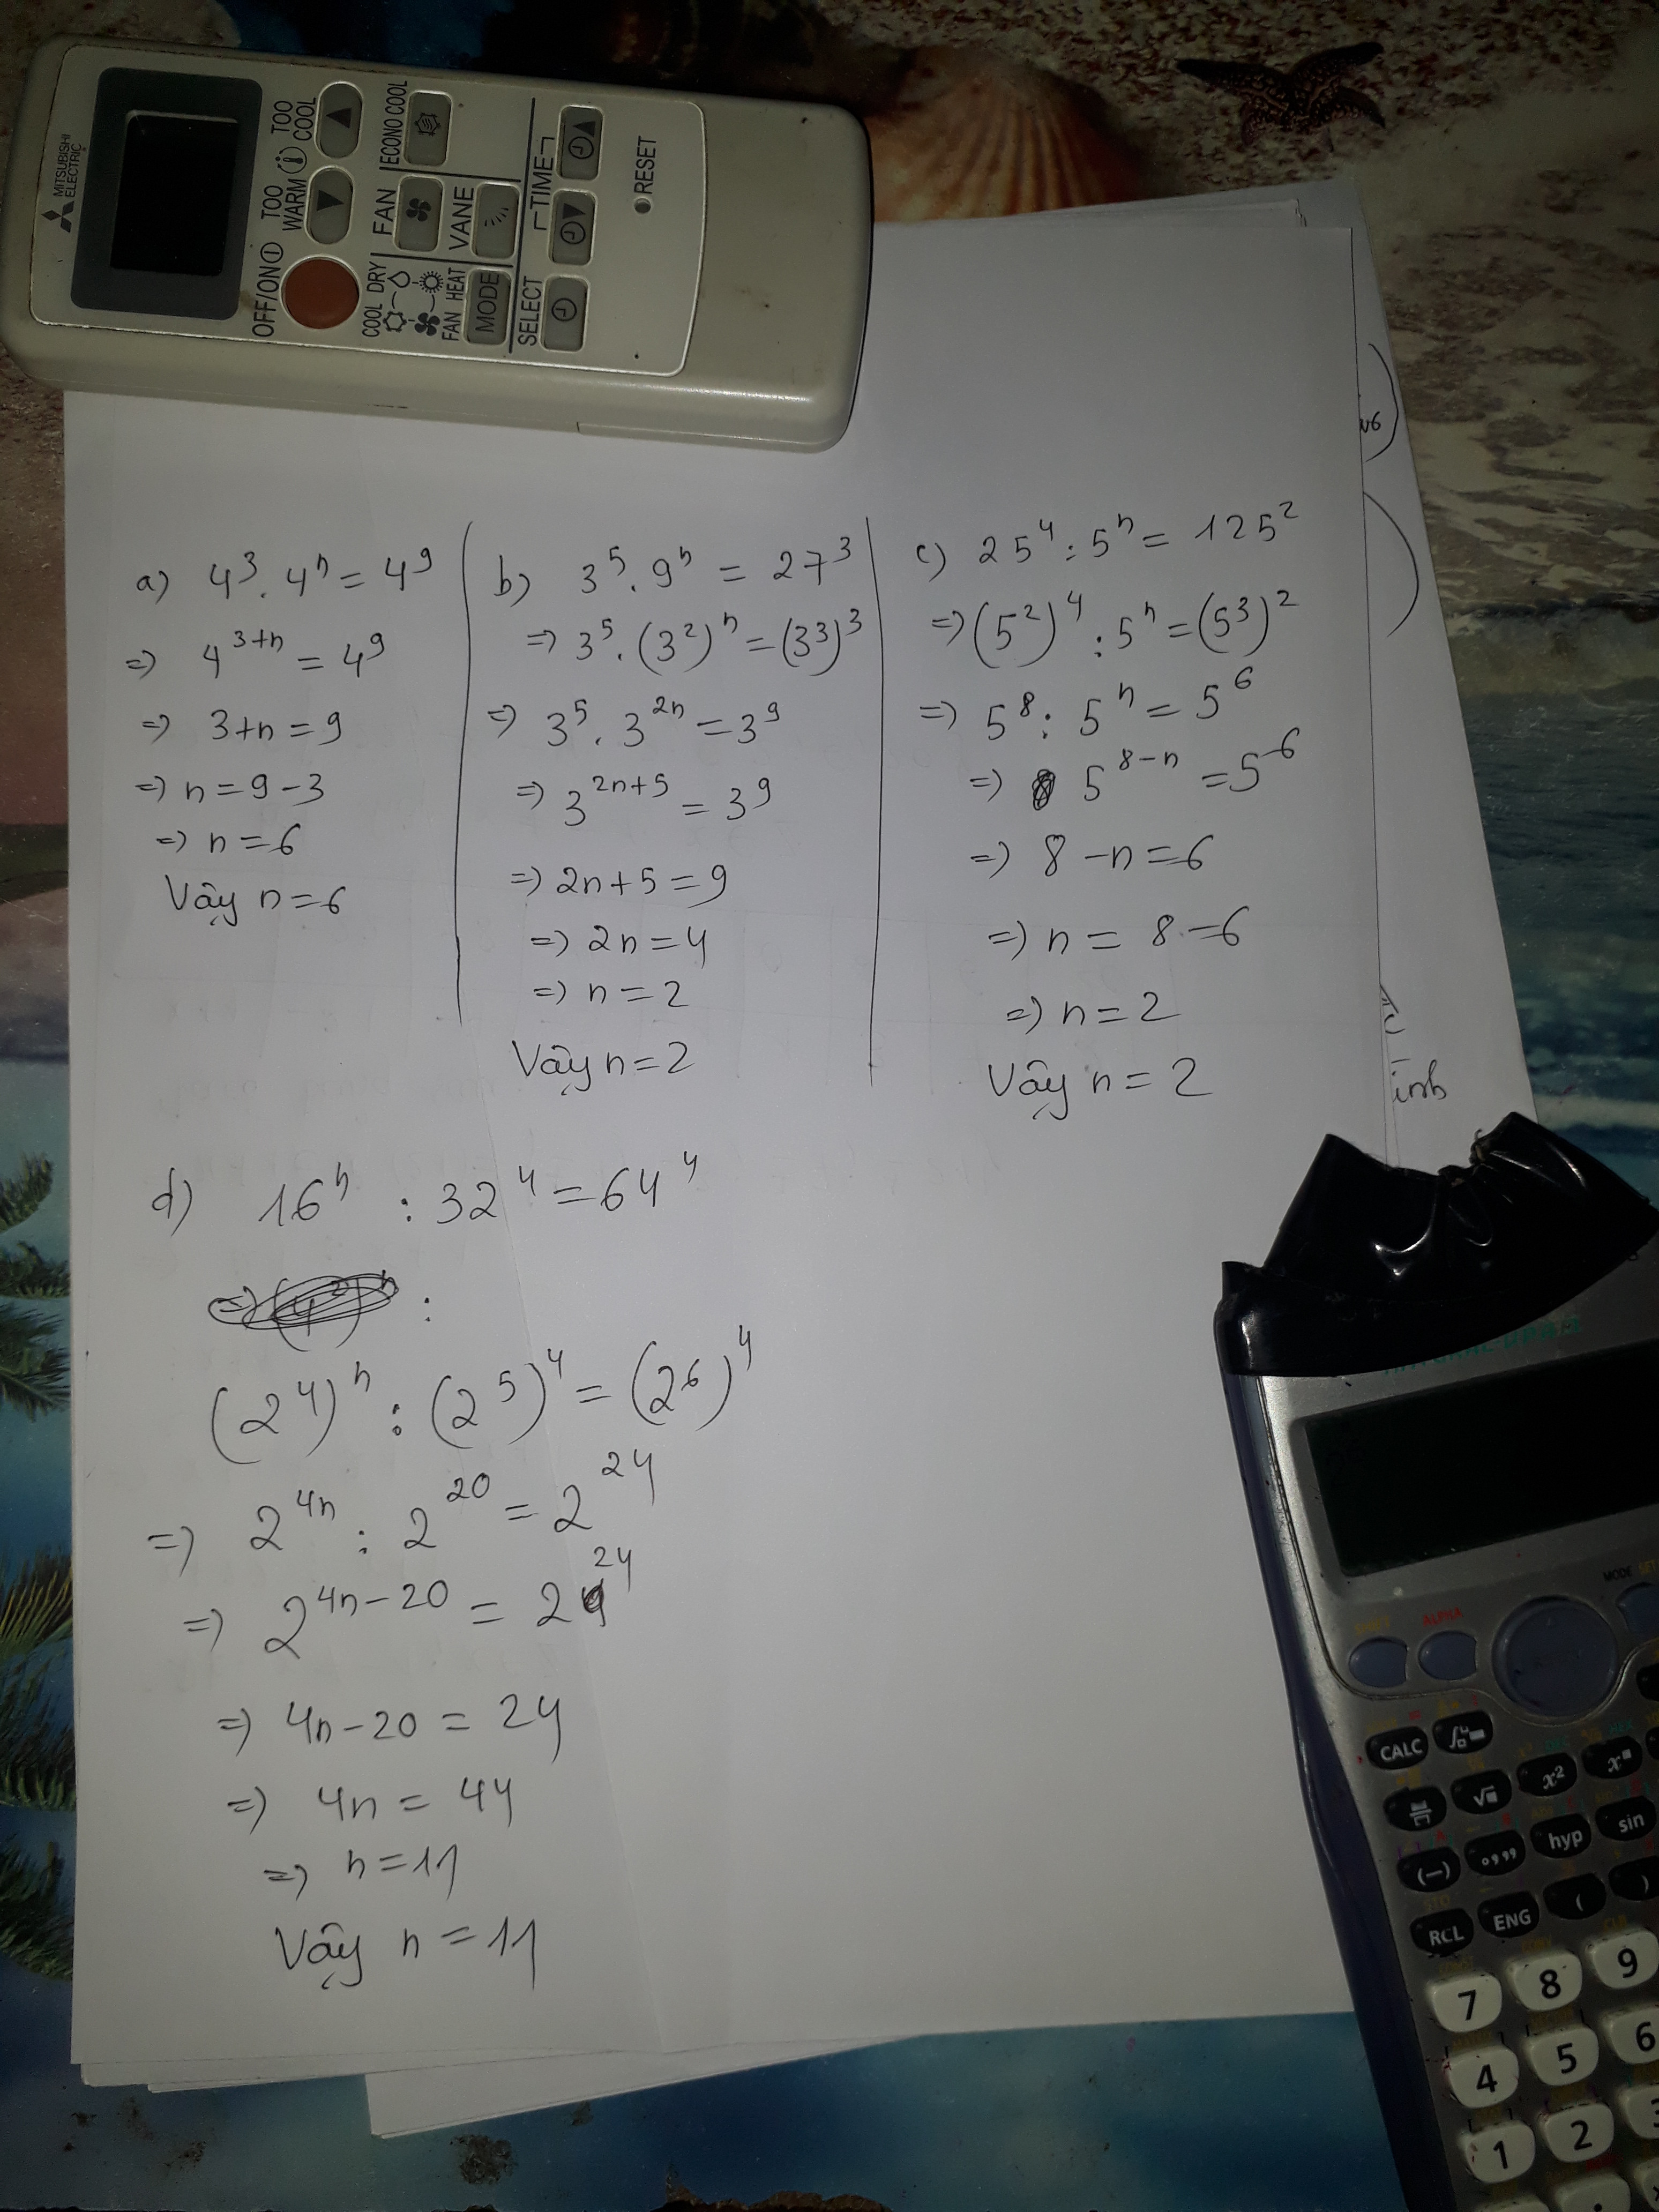 MITSUBISHI ELECTRIC
OFF/ON
TOO WARM
TOO COOL
COOL DRY
FAN HEAT
FAN
ECONO COOL
VANE
MODE
SELECT
TIME
RESET
a) 4³ . 4ⁿ = 4⁹
=> 4³⁺ⁿ = 4⁹
=> 3+n = 9
=> n = 9 - 3
=> n = 6
Vậy n = 6
b) 3⁵ . 9ⁿ = 27³
=> 3⁵ . (3²)ⁿ = (3³)³
=> 3⁵ . 3²ⁿ = 3⁹
=> 3²ⁿ⁺⁵ = 3⁹
=> 2n+5 = 9
=> 2n = 4
=> n = 2
Vậy n = 2
c) 25⁴ : 5ⁿ = 125²
=> (5²)⁴ : 5ⁿ = (5³)²
=> 5⁸ : 5ⁿ = 5⁶
=> 5⁸⁻ⁿ = 5⁶
=> 8 - n = 6
=> n = 8 - 6
=> n = 2
Vậy n = 2
d) 16ⁿ : 32⁴ = 64⁴
:
(2⁴)ⁿ : (2⁵)⁴ = (2⁶)⁴
=> 2⁴ⁿ : 2²⁰ = 2²⁴
=> 2⁴ⁿ⁻²⁰ = 2²⁴
=> 4n - 20 = 24
=> 4n = 44
=> n = 11
Vậy n = 11
ính
MODE
ALPHA
CALC
x²
hyp sin
(-) °,,,
RCL ENG ( )
7 8 9
4 5 6
1 2 3